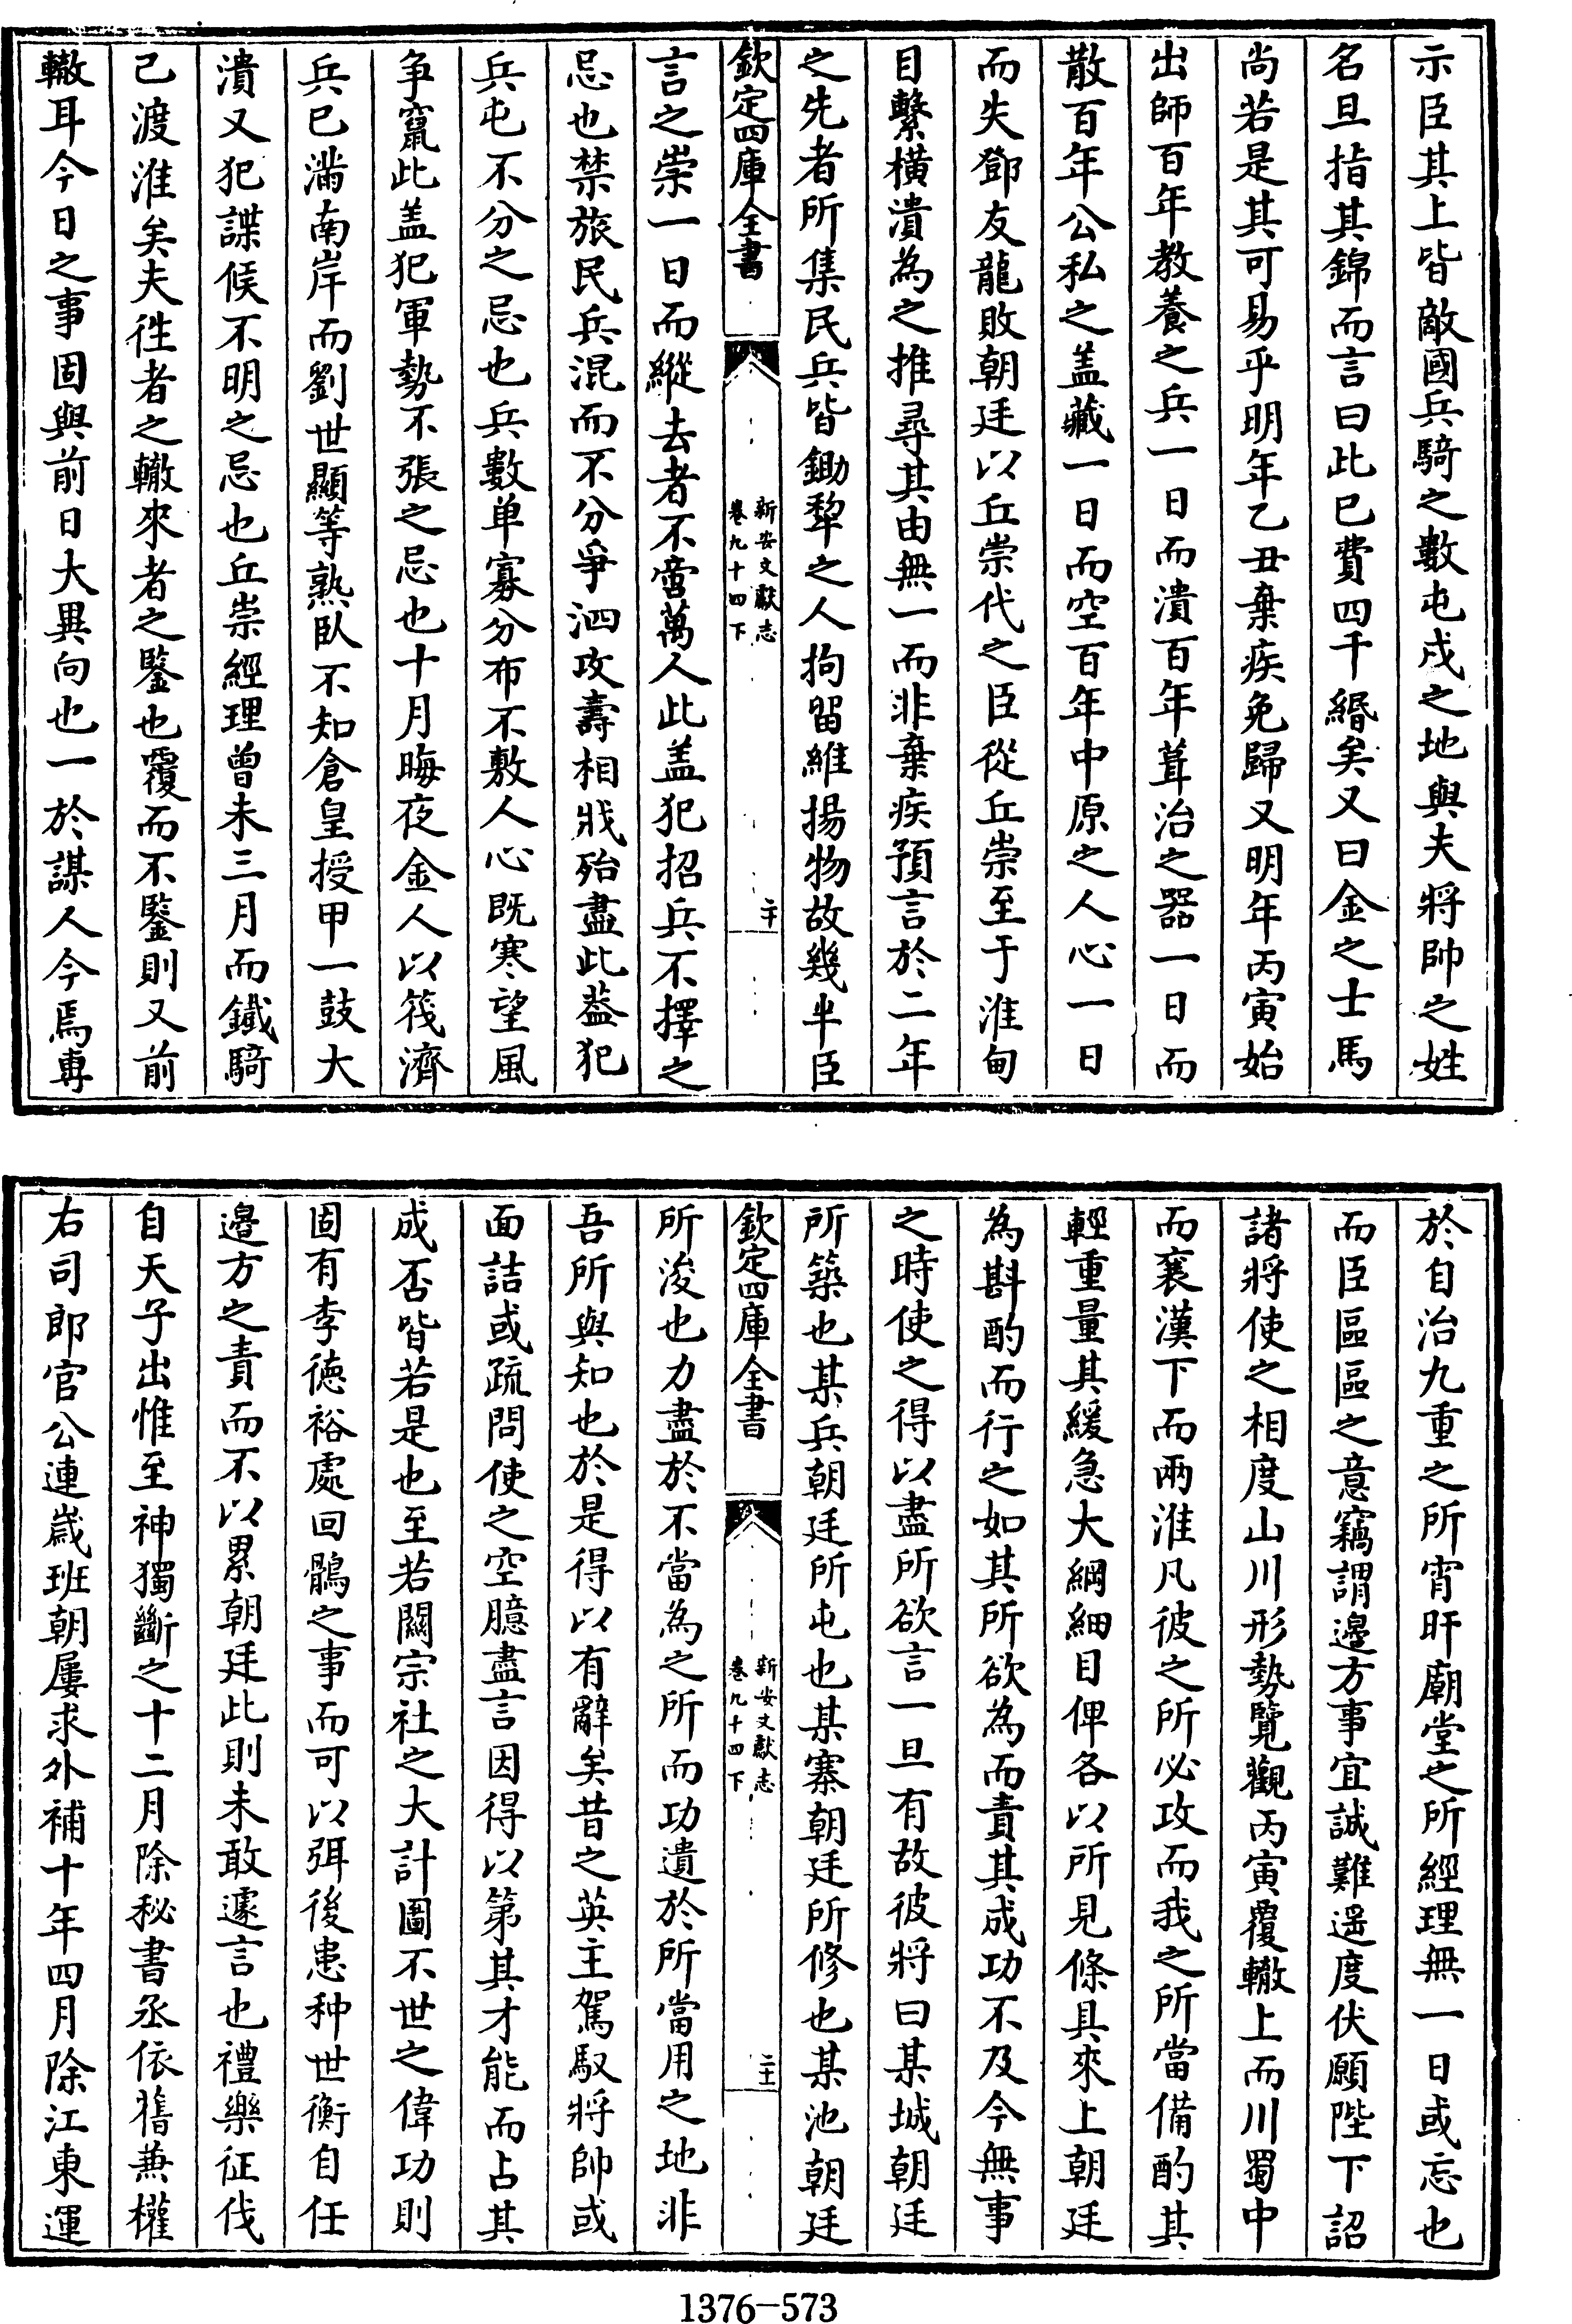 示臣其上皆敵國兵騎之數屯戍之地與夫將帥之姓
名且指其錦而言曰此已費四千緡矣又曰金之士馬
尚若是其可易乎明年乙丑棄疾免歸又明年丙寅始
出師百年教養之兵一日而潰百年葺治之器一日而
散百年公私之盖藏一日而空百年中原之人心一日
而失鄧友龍敗朝廷以丘崇代之臣從丘崇至于淮甸
目擊橫潰為之推尋其由無一而非棄疾預言於二年
之先者所集民兵皆鋤犂之人拘留維揚物故幾半臣
欽定四庫全書
新安文獻志
卷九十四下
二十
言之崇一日而縱去者不啻萬人此盖犯招兵不擇之
忌也禁旅民兵混而不分爭泗攻壽相戕殆盡此葢犯
兵屯不分之忌也兵數单寡分布不敷人心既寒望風
争竄此盖犯軍勢不張之忌也十月晦夜金人以筏濟
兵已滿南岸而劉世顯等熟臥不知倉皇授甲一鼓大
潰又犯諜候不明之忌也丘崇經理曾未三月而鐵騎
已渡淮矣夫徃者之轍來者之鑒也覆而不鑒則又前
轍耳今日之事固與前日大異向也一於謀人今焉專
於自治九重之所宵旰廟堂之所經理無一日或忘也
而臣區區之意竊謂邉方事宜誠難遥度伏願陛下詔
諸將使之相度山川形勢覽觀丙寅覆轍上而川蜀中
而襄漢下而兩淮凡彼之所必攻而我之所當備酌其
輕重量其緩急大綱細目俾各以所見條具來上朝廷
為斟酌而行之如其所欲為而責其成功不及今無事
之時使之得以盡所欲言一旦有故彼將曰某城朝廷
所築也某兵朝廷所屯也某寨朝廷所修也某池朝廷
欽定四庫全書
新安文獻志
卷九十四下
二十一
所浚也力盡於不當為之所而功遺於所當用之地非
吾所與知也於是得以有辭矣昔之英主駕馭將帥或
面詰或疏問使之空臆盡言因得以第其才能而占其
成否皆若是也至若關宗社之大計圖不世之偉功則
固有李徳裕處回鶻之事而可以弭後患种世衡自任
邉方之責而不以累朝廷此則未敢遽言也禮樂征伐
自天子出惟至神獨斷之十二月除秘書丞依舊兼權
右司郎官公連歳班朝屢求外補十年四月除江東運
1376-573